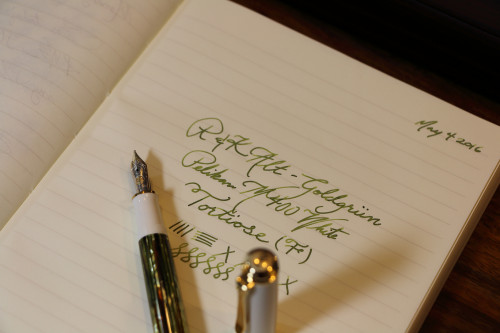 May 4 2016
R&K Alt-Goldgrün
Pelikan M400 White
Tortiose (F)